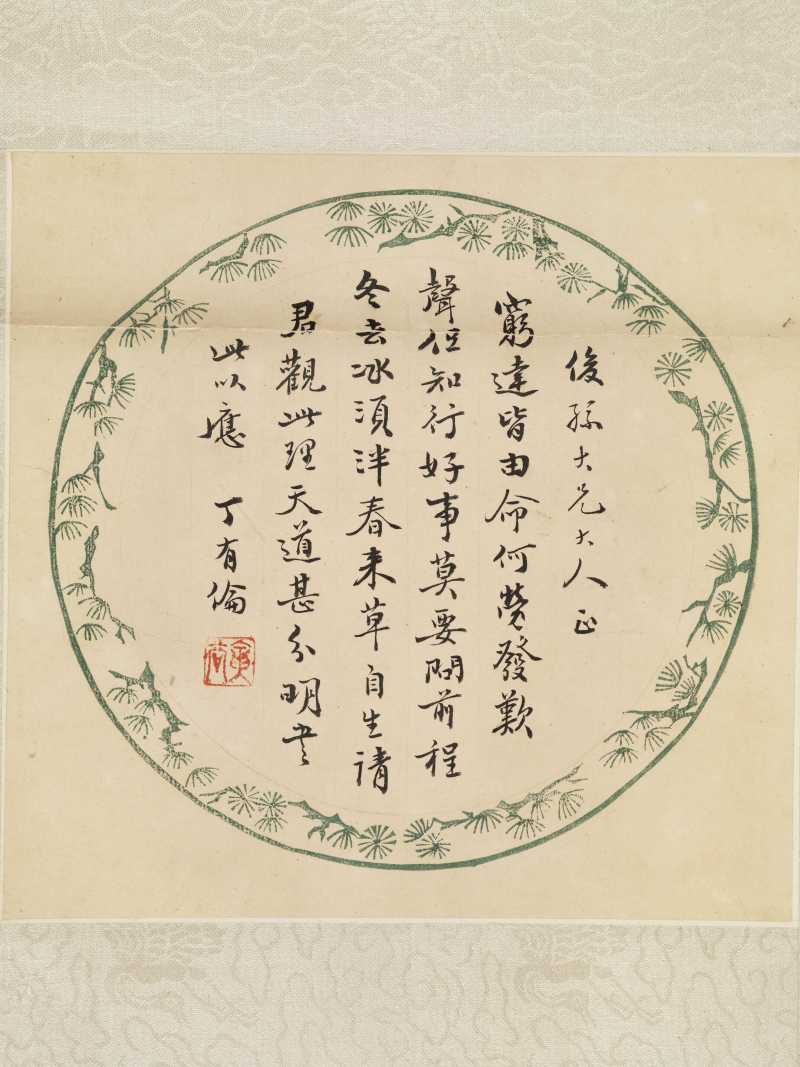 俊孫大兄大人正
窮達皆由命何勞發歎
聲但知行好事莫要問前程
冬去冰須泮春来草自生請
君觀此理天道甚分明書
此以應 丁有倫